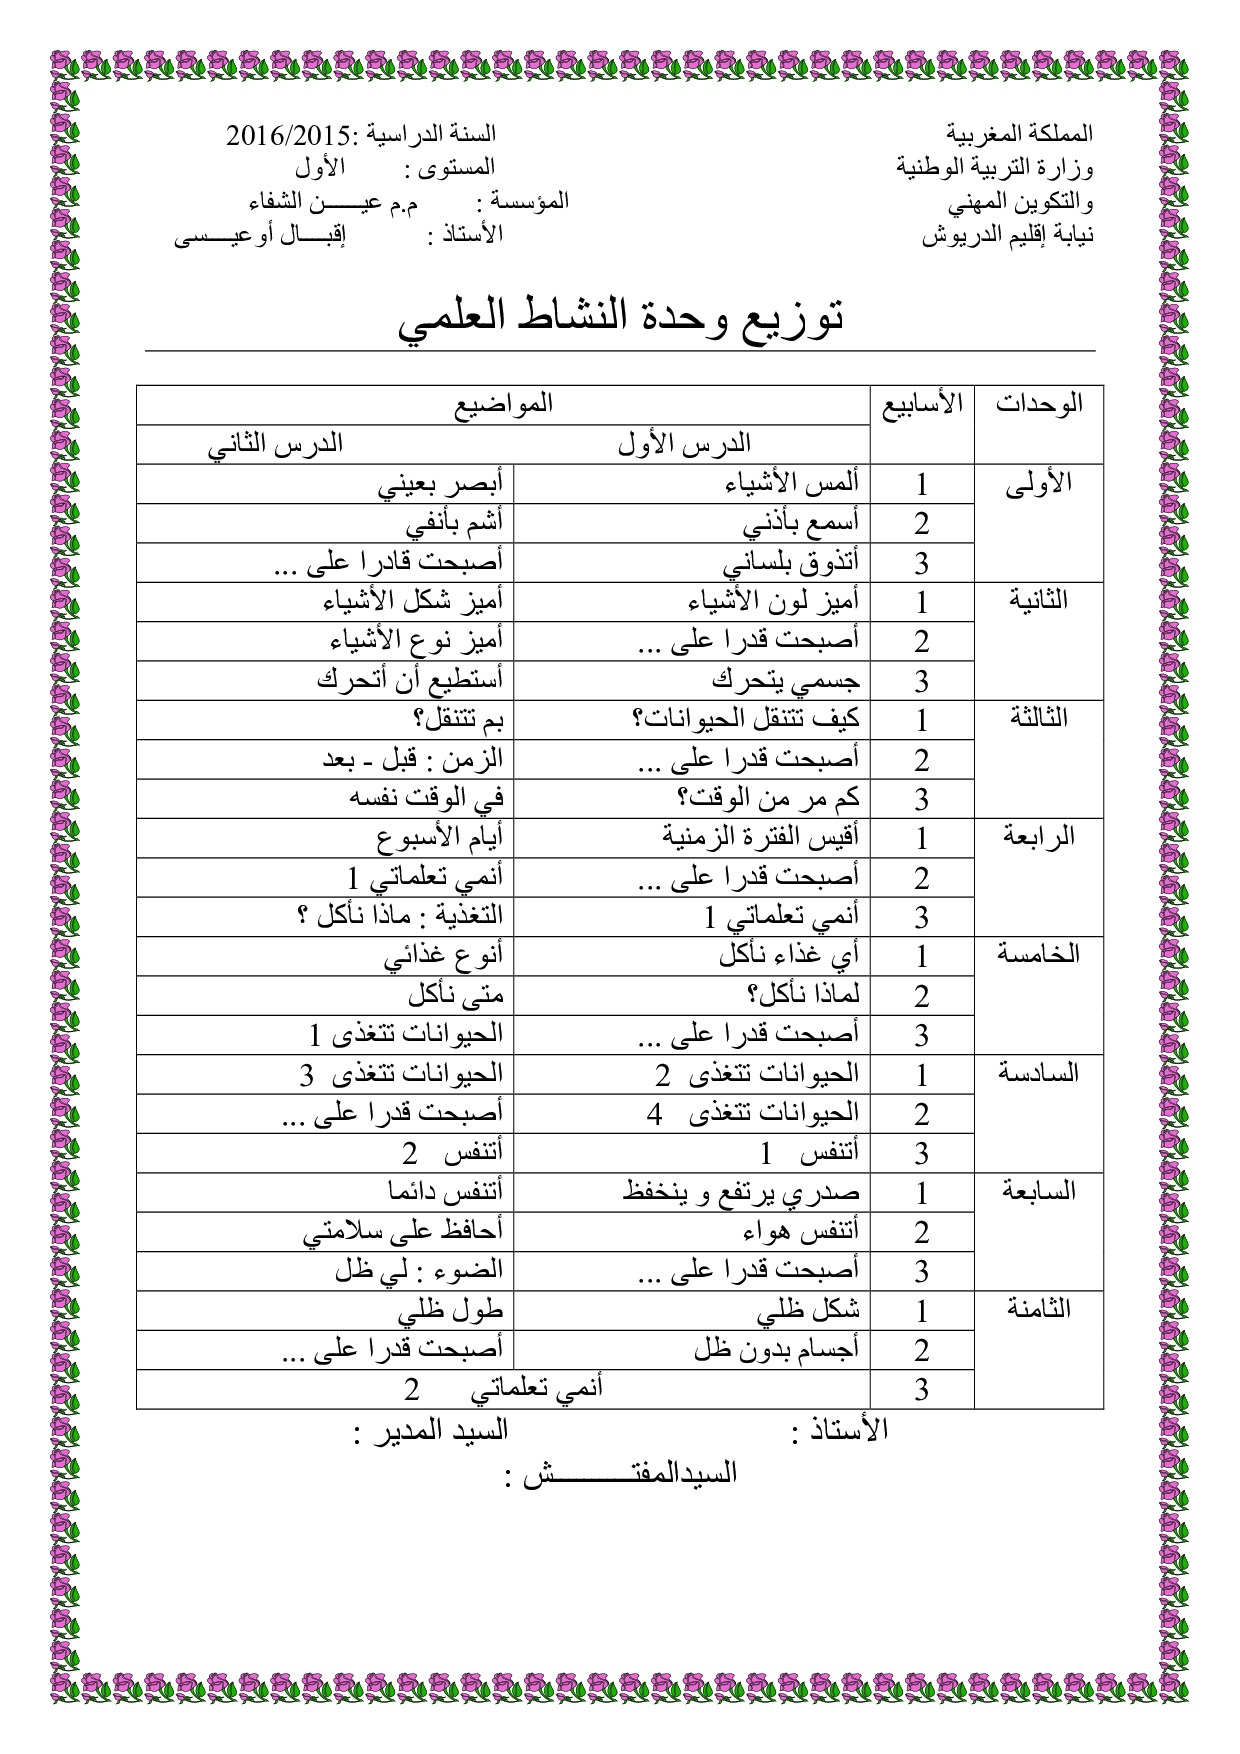 المملكة المغربية السنة الدراسية :2016/2015
وزارة التربية الوطنية المستوى : الأول
والتكوين المهني المؤسسة : م.م عيـــــن الشفاء
نيابة إقليم الدريوش الأستاذ : إقبــــال أوعيــــسى
توزيع وحدة النشاط العلمي
الوحدات الأسابيع المواضيع
الدرس الأول الدرس الثاني
الأولى 1 ألمس الأشياء أبصر بعيني
2 أسمع بأذني أشم بأنفي
3 أتذوق بلساني أصبحت قادرا على ...
الثانية 1 أميز لون الأشياء أميز شكل الأشياء
2 أصبحت قدرا على ... أميز نوع الأشياء
3 جسمي يتحرك أستطيع أن أتحرك
الثالثة 1 كيف تتنقل الحيوانات؟ بم تتنقل؟
2 أصبحت قدرا على ... الزمن : قبل - بعد
3 كم مر من الوقت؟ في الوقت نفسه
الرابعة 1 أقيس الفترة الزمنية أيام الأسبوع
2 أصبحت قدرا على ... أنمي تعلماتي 1
3 أنمي تعلماتي 1 التغذية : ماذا نأكل ؟
الخامسة 1 أي غذاء نأكل أنوع غذائي
2 لماذا نأكل؟ متى نأكل
3 أصبحت قدرا على ... الحيوانات تتغذى 1
السادسة 1 الحيوانات تتغذى 2 الحيوانات تتغذى 3
2 الحيوانات تتغذى 4 أصبحت قدرا على ...
3 أتنفس 1 أتنفس 2
السابعة 1 صدري يرتفع و ينخفظ أتنفس دائما
2 أتنفس هواء أحافظ على سلامتي
3 أصبحت قدرا على ... الضوء : لي ظل
الثامنة 1 شكل ظلي طول ظلي
2 أجسام بدون ظل أصبحت قدرا على ...
3 أنمي تعلماتي 2
الأستاذ : السيد المدير :
السيدالمفتـــــــــــش :